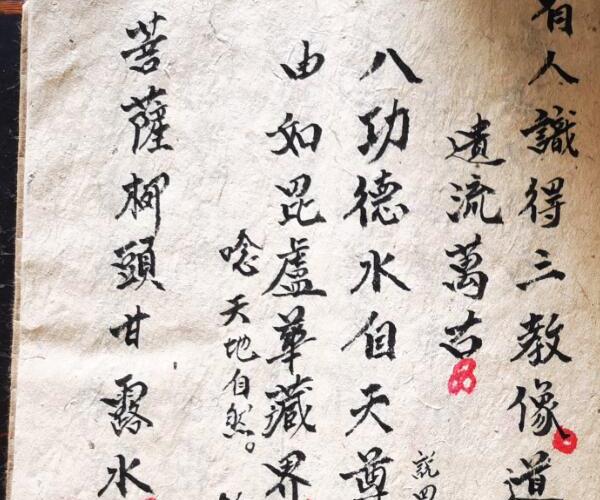 有人識得三教像道
遺流萬古
說
八功德水自天尊
由如毘盧華藏界
唸天地自然。
菩薩柳頭甘露水